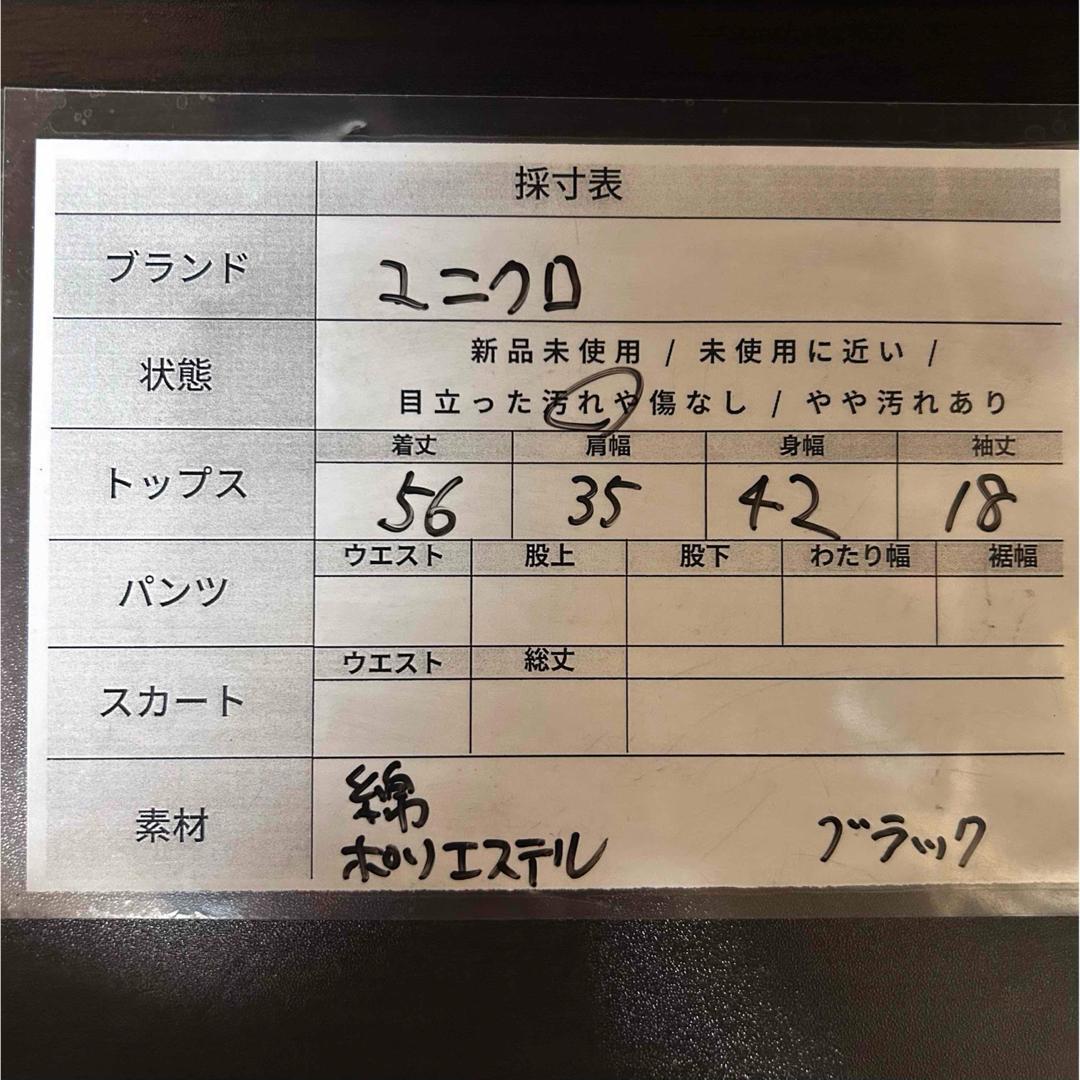 採寸表
ブランド
ユニクロ
状態
新品未使用 / 未使用に近い /
目立った汚れや傷なし / やや汚れあり
トップス
着丈 肩幅 身幅 袖丈
56 35 42 18
パンツ
ウエスト 股上 股下 わたり幅 裾幅
スカート
ウエスト 総丈
素材
綿
ポリエステル ブラック